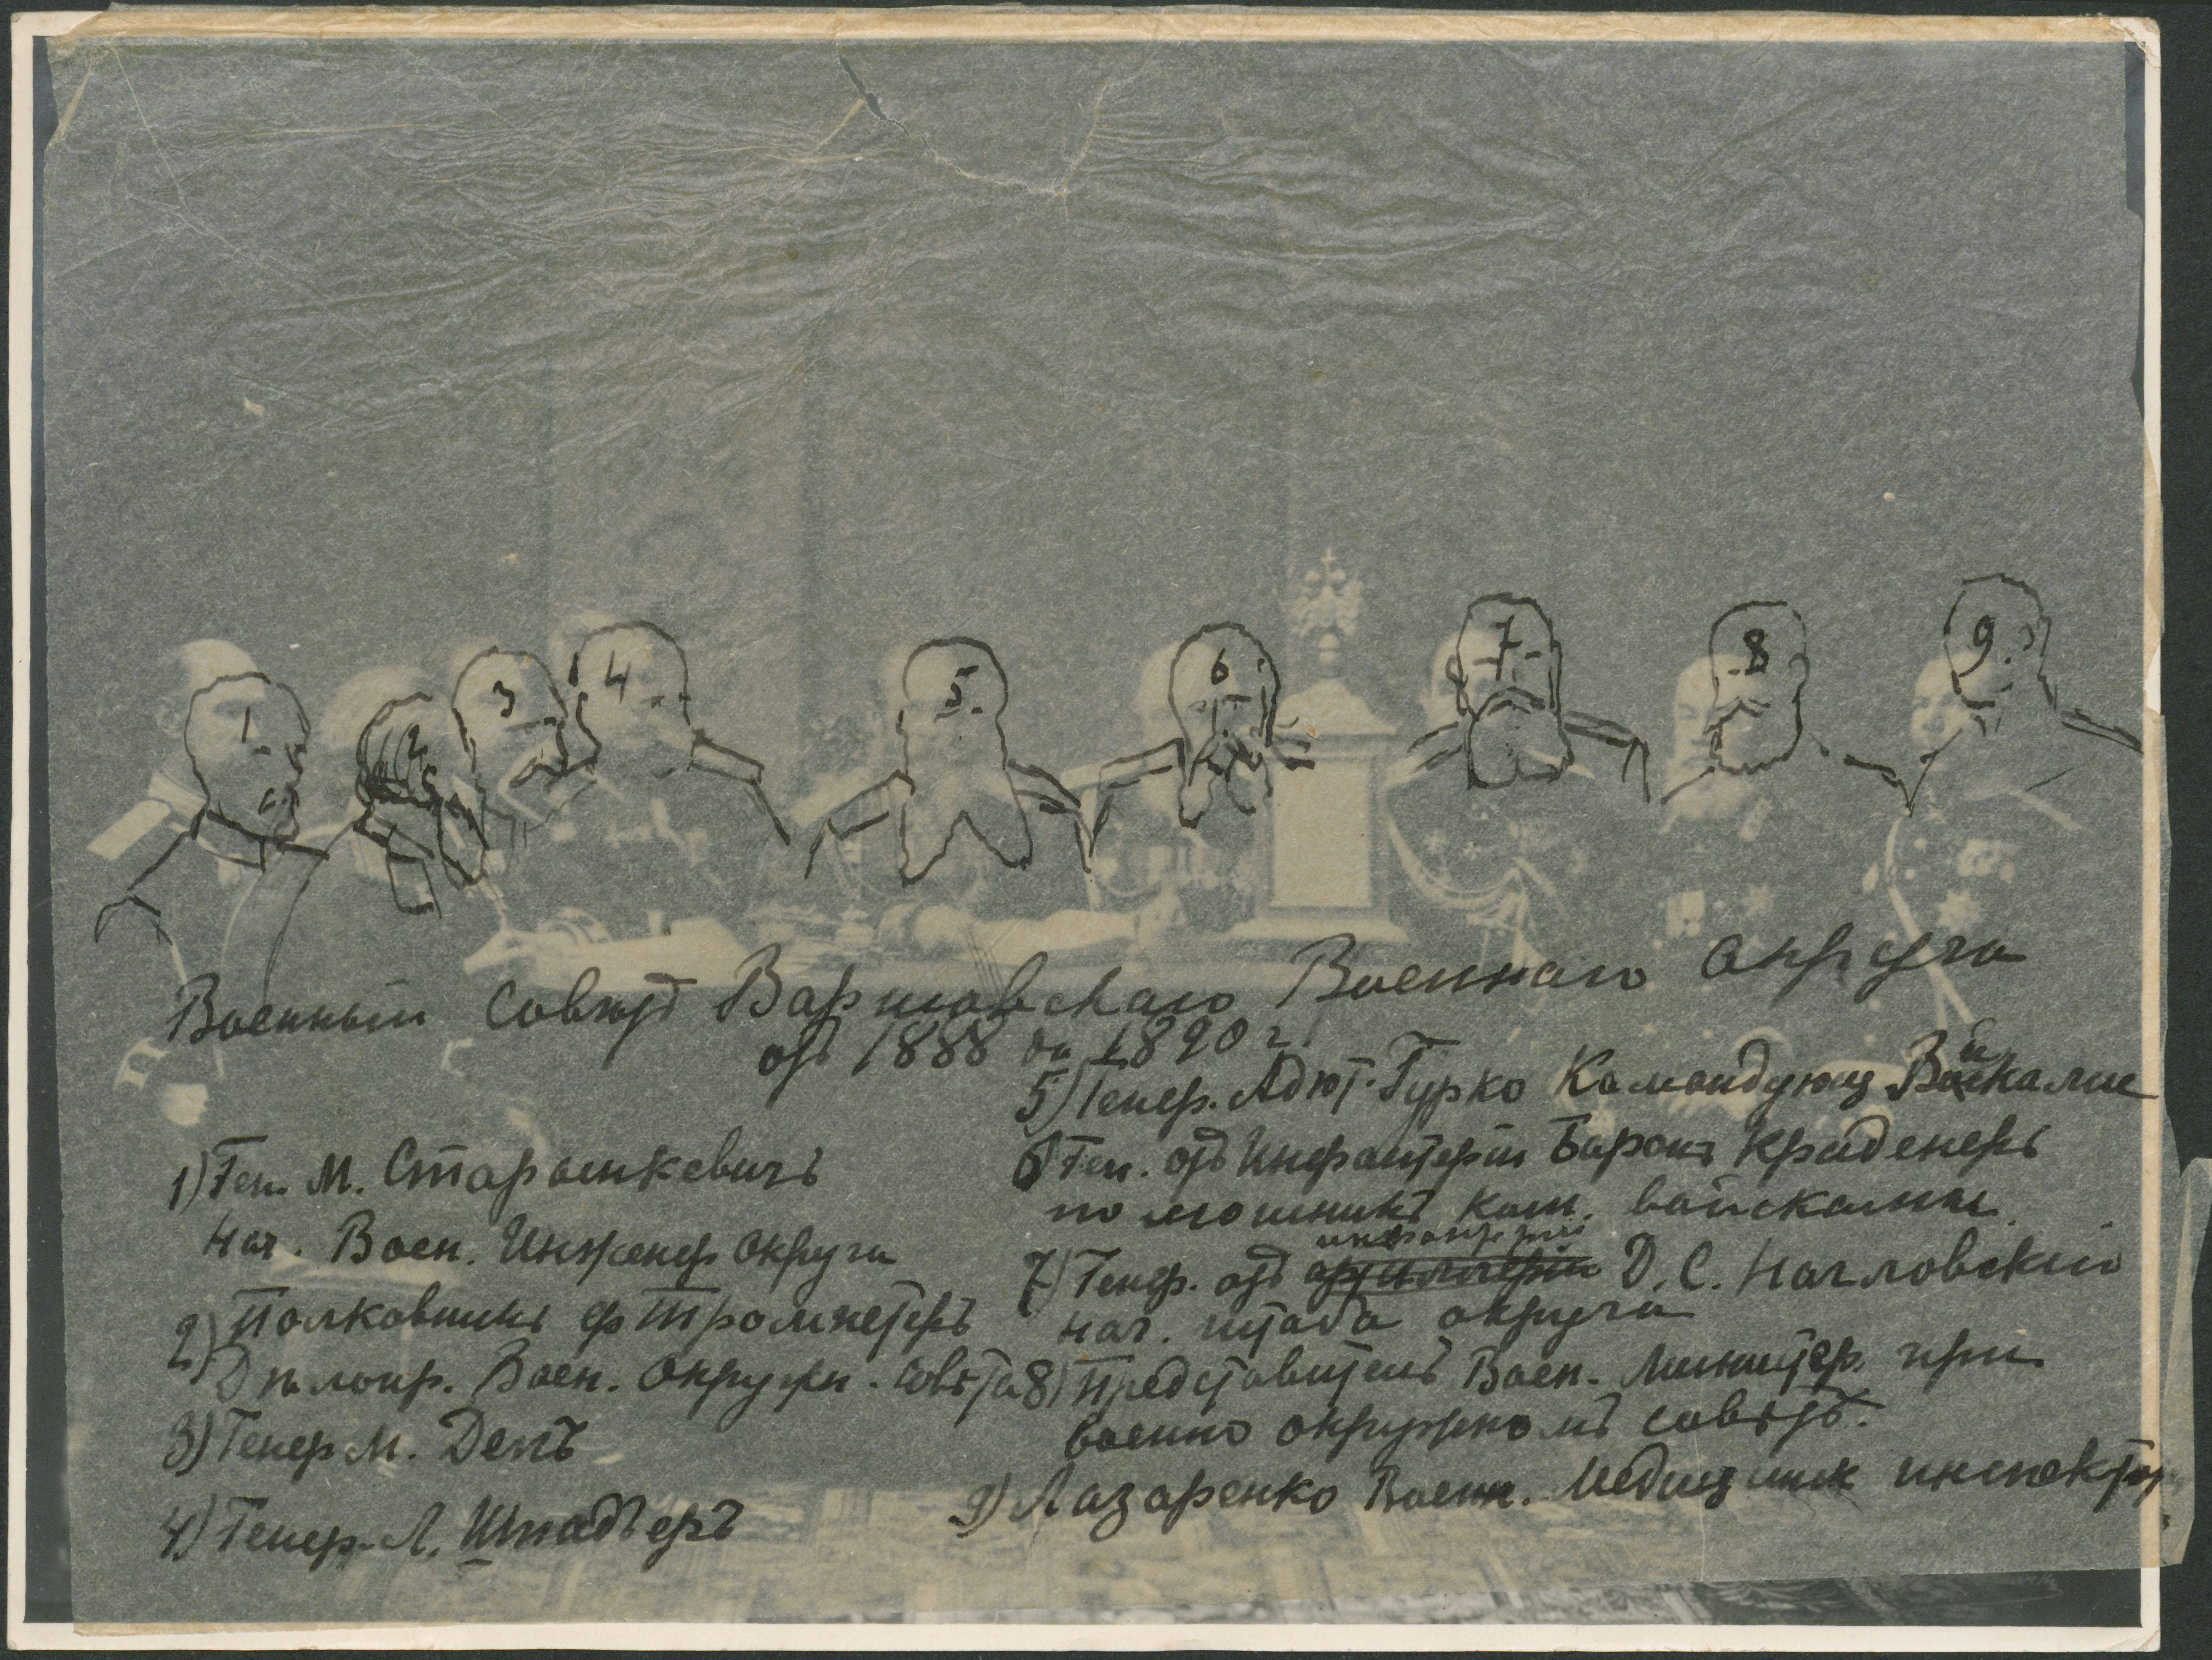 1
2
3
4
5
6
7
8
9
Военный Совѣтъ Варшавскаго Военнаго Округа
отъ 1888 до 1890 г.
1) Ген. М. Старынкевичъ
нач. Воен. Инженер округа
2) Полковникъ ф Тромпетеръ
Дѣлопр. Воен. Окружн. совѣта
3) Генер М. Денъ
4) Генер. Л. Шпадъеръ
5) Генер. Адют. Гурко Командующ Войсками
6) Ген. отъ Инфантеріи Баронъ Криденеръ
помошникъ ком. войсками
инфантеріи
7) Генер. отъ артиллеріи Д. С. Нагловскій
нач. штаба округа
8) Представитель Воен. Министер. при
военно окружномъ совѣтѣ.
9) Лазаренко Военн. Медицинск инспектор